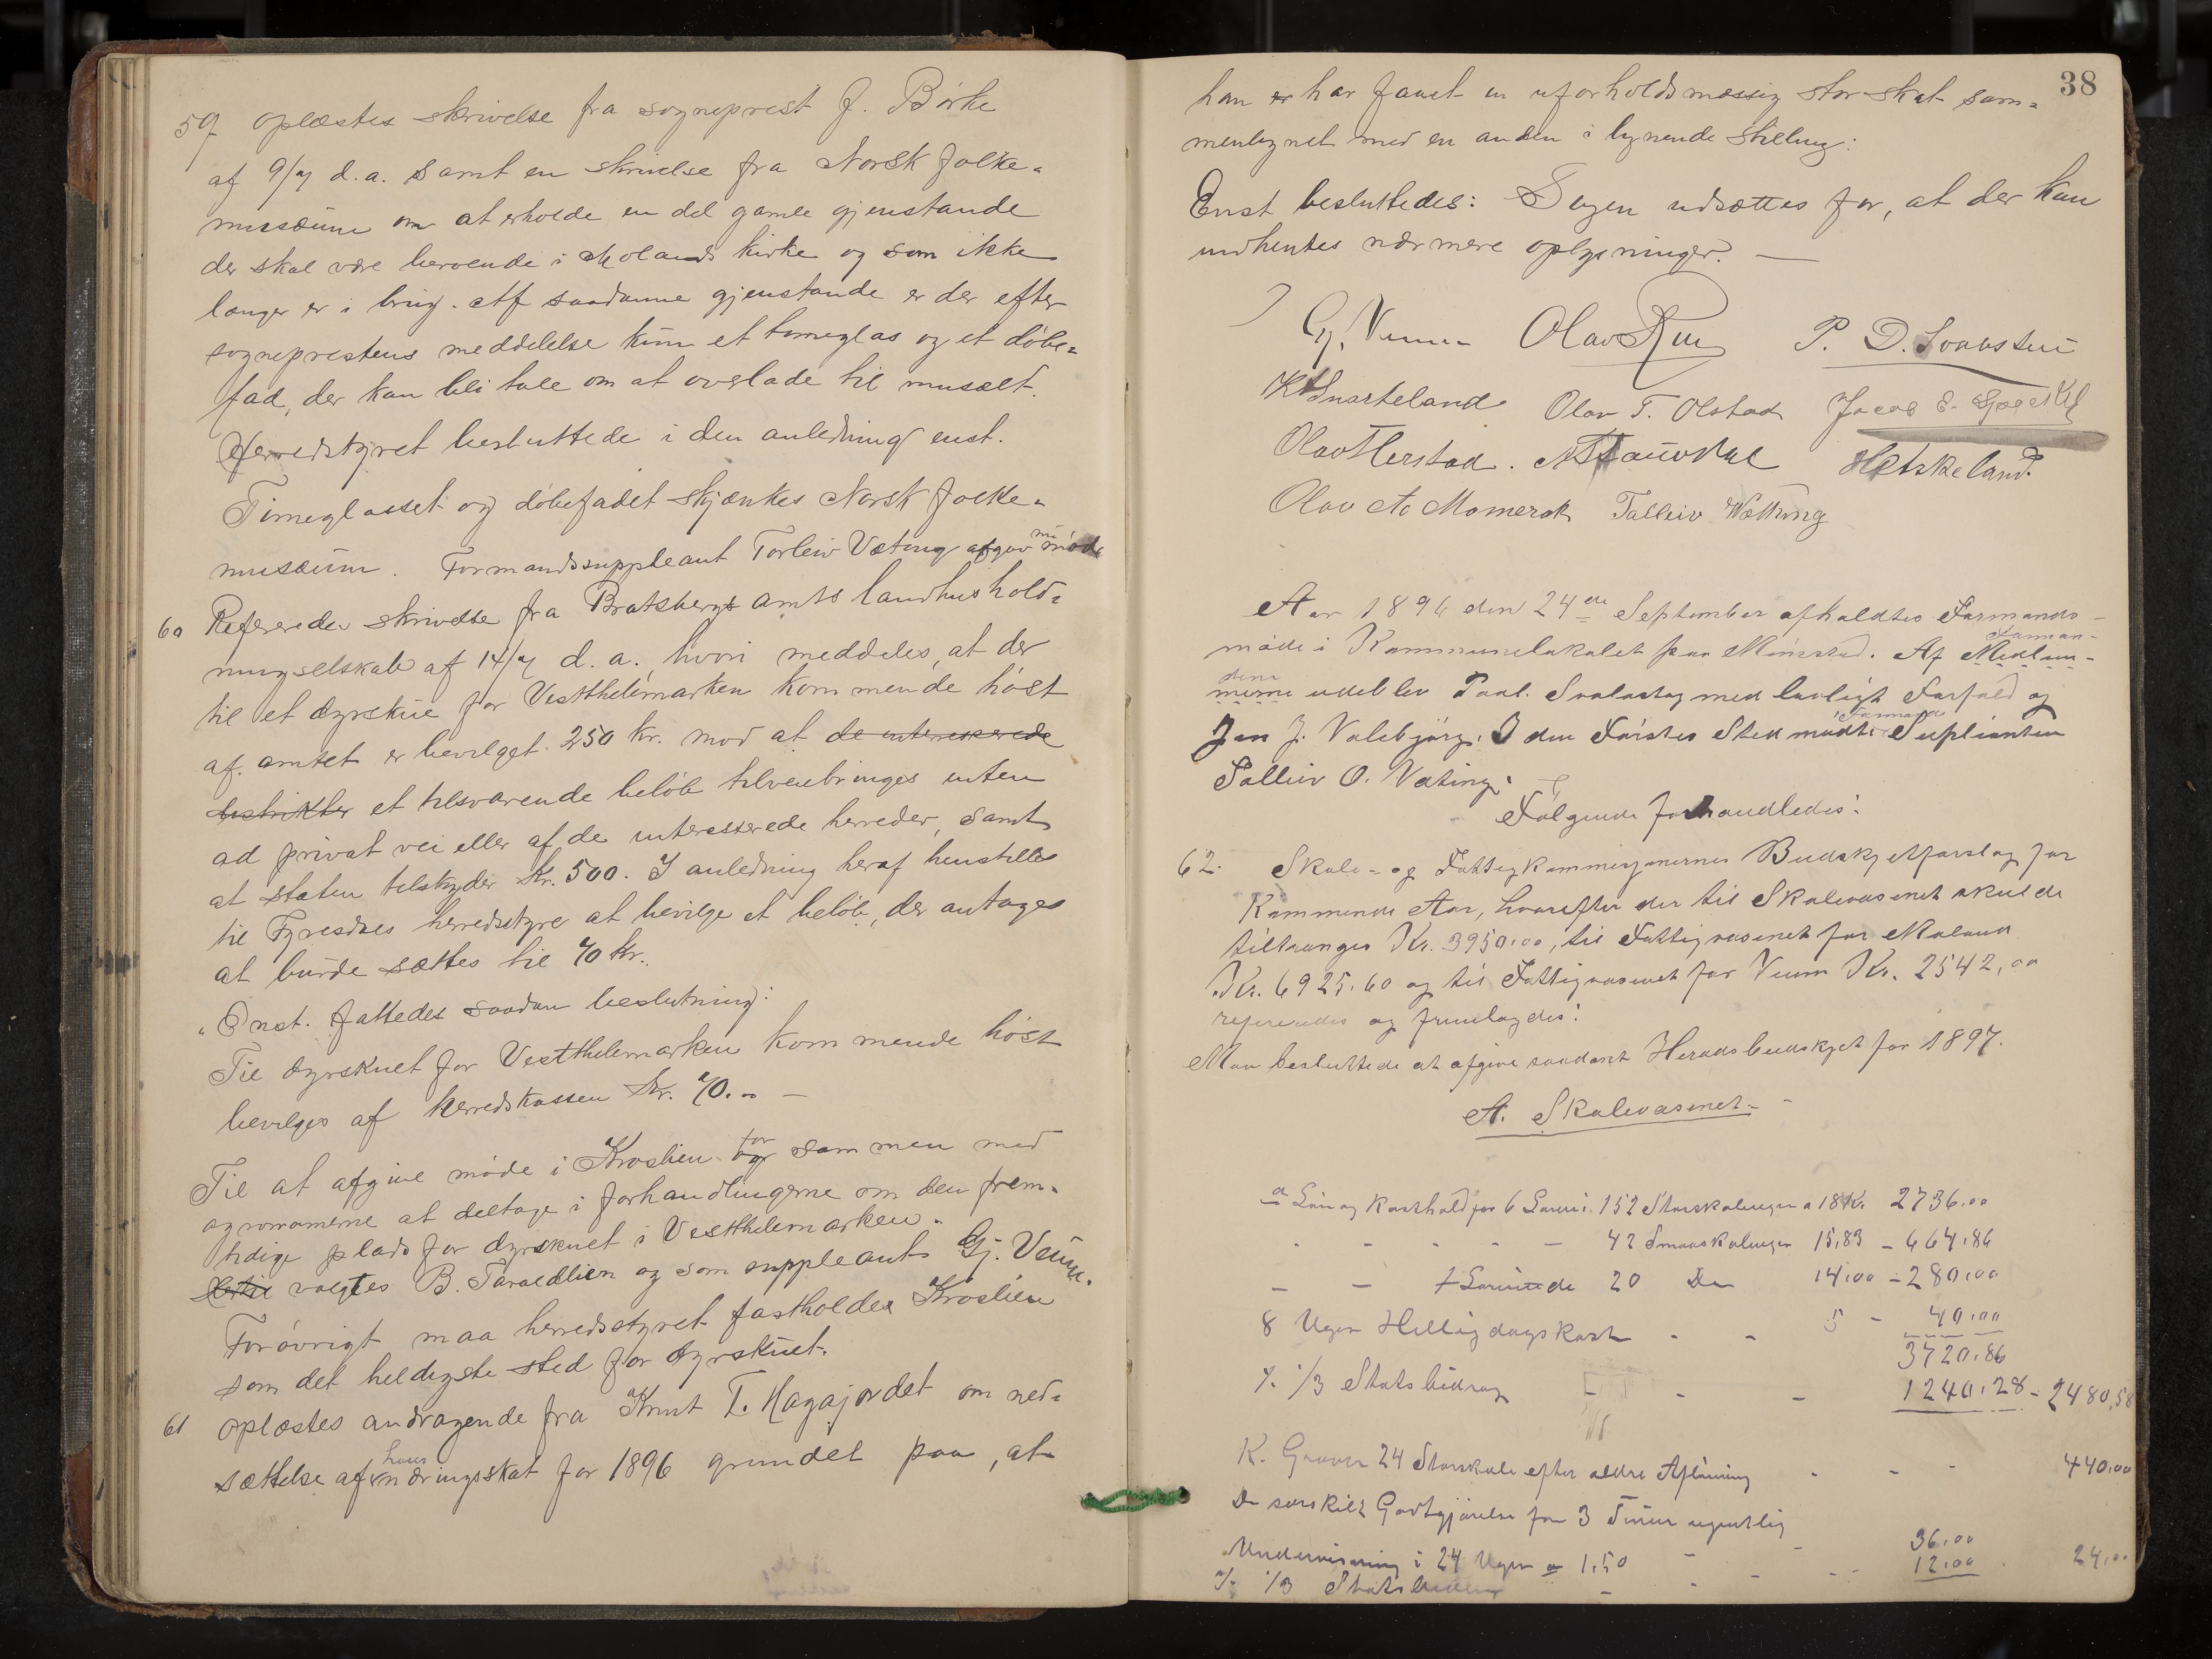 59 oplæstes skrivelse fra sogneprest J. Börke
af 9/7 d.a. samt en skrivelse fra Norsk folke=
musæum om at erholde en del gamle gjenstande
der skal være beroende i Molands kirke og som ikke
længer er i brug. Af saadanne gjenstande er der efter
sogneprestens meddelelse kun et timeglas og et döbe=
fad, der kan bli tale om at overlade til musæet.
Herredstyret besluttede i den anledning enst.
Timeglasset og döbefadet skjænkes Norsk folke=
musæum. Formandssuppleant Torleiv Vætting afgav nu möde
60 Refereredes skrivelse fra Bratsbergs amts landhushold=
ningselskab af 14/7 d.a. hvori meddeles, at der
til et dyrskue for Vestthelemarken kommende höst
af amtet er bevilget 250 kr. mod at de interesserede
distrikter et tilsvarende belöb tilveiebringes enten
ad privat vei eller af de interesserede herreder, samt
at staten tilskyder Kr. 500. I anledning heraf henstilles
til Fyresdals herredsstyre at bevilge et belöb, der antages
at burde sættes til 70 kr.
Enst. fattedes saadan beslutning:
Til dyrskuet for Vestthelemarken kommende höst
bevilges af herredskassen kr. 70.00 —
Til at afgive möde i Kroslien for sammen med
agronomerne at deltage i forhandlingerne om den frem=
tidige plads for dyrskuet i Vestthelemarken
valgtes B. Taraldlien og som suppleant Gj. Veum.
Forövrigt maa herredsstyret fastholde Kroslien
som det heldigste sted for dyrskuet.
61 oplæstes andragende fra Knut T. Hagajordet om ned=
sættelse af hans næringsskat for 1896 grundet paa, at
38
han er har faaet en uforholdsmæssig stor skat sam=
menlignet med en anden i lignende stilling:
Enst besluttedes: Sagen udsættes for, at der kan
indhentes nærmere oplysninger. —
Gj. Veum Olav Rui P. D. Svaastui
K Snarteland Olav T. Olstad Jacob
Olav Herstad. Hetskeland.
Olav Aa Momerak Talleiv Vætting
Aar 1896 den 24de September afholdtes Formands-
möde i Kommunelokalet paa Momrak. Af Medlem- Forman-
merne dene udeblev Paal. Svalastog med lovligt Forfald og
Jon J. Valebjörg. I den Förstes Sted mødte Formands Suplianten
Talleiv O. Vætting.
Følgende forhandledes:
62. Skole- og Fattigkommisjonernes Budskjetforslag for
kommende Aar, hvorefter der til Skolevæsenet skulde
tiltrænges Kr. 3950.00, til Fattigvæsenet for Moland
Kr. 6925.60 og til Fattigvæsenet for Veum Kr. 2542,00
refereredes og fremlagdes.
Man besluttede at afgive saadant Heradsbudskjet for 1897.
A. Skolevæsenet.
a Løn og Kosthold for 6 Lærere i 152 Storskoleuger a 18 Kr. 2736.00
- - - - 42 Smaaskoleuger 15,83 - 664.86
- - 1 Lærerinde 20 Do 14.00 - 280.00
8 Uger Helligdagskost - - 5 - 40.00
3720.86
% 1/3 Statsbidrag - - - 1240.28 - 2480,58
K. Graver 24 Storskole efter ældre Aflønning - - - 440.00
Do særskilt Godtgjørelse for 3 Timers ugentlig
Undervisning i 24 Uger a 1.50 - - 36.00
% 1/3 Statsbidrag - - - 12.00 24.00